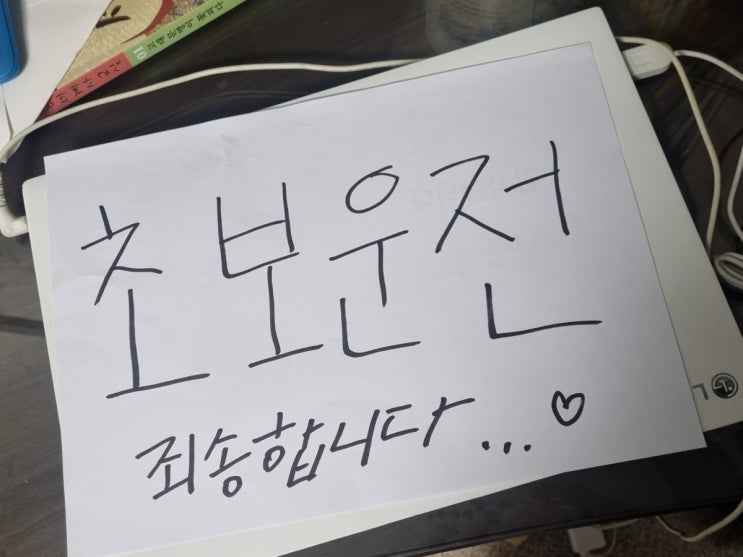 초보운전
죄송합니다...♡